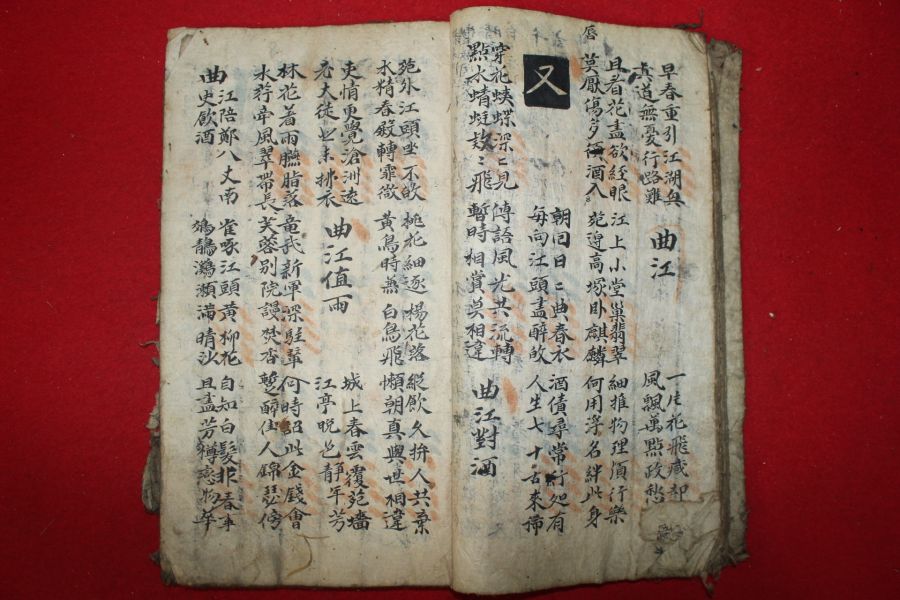 早春重引江湖興
直道無憂行路難
曲江
一片花飛減却
風飄萬點政愁
且看花盡欲經眼
莫厭傷多酒入
唇
江上小堂巢翡翠
苑邊高塚卧麒麟
細推物理須行樂
何用浮名絆此身
又
朝回日〻典春衣
每向江頭盡醉皈
酒債尋常行処有
人生七十古來稀
穿花蛺蝶深〻見
點水蜻蜓款〻飛
傳語風光共流轉
暫時相賞莫相違
曲江對酒
苑外江頭坐不皈
水精春殿轉霏微
桃花細逐楊花落
黃鳥時兼白鳥飛
縱飲久拚人共棄
懶朝真與世相違
吏情更覺滄洲遠
老大徒悲未拂衣
曲江值雨
城上春雲覆苑墻
江亭晚色靜年芳
林花着雨臙脂落
水荇牽風翠帶長
竜武新軍深駐輦
芙蓉別院謾焚香
何時詔此金錢會
暫醉佳人錦瑟傍
曲江陪鄭八丈南
史飲酒
雀啄江頭黃柳花
鵁鶄鸂鶒滿晴沙
自知白髮非春事
且盡芳樽戀物華